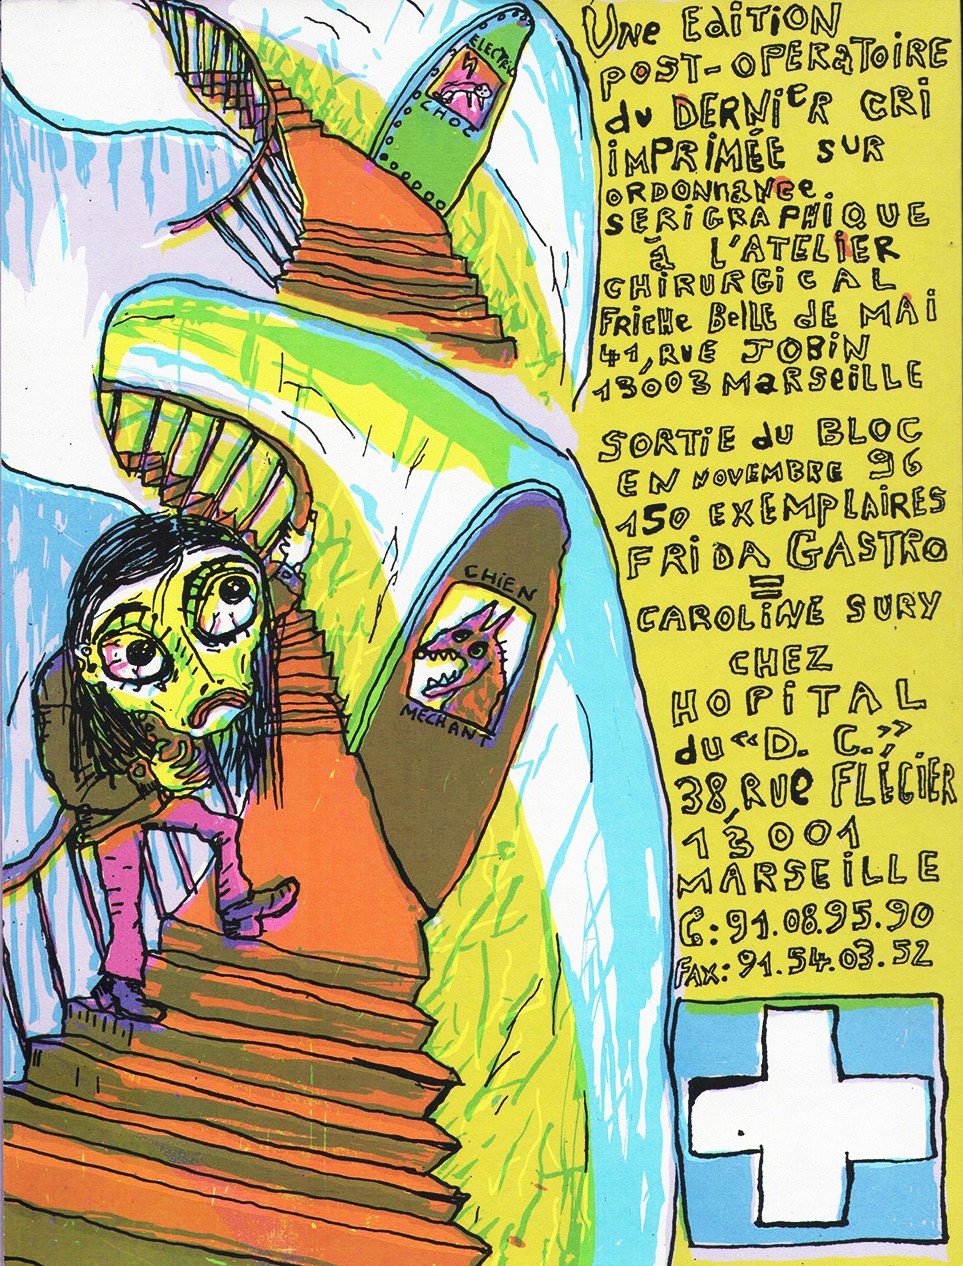 ELECTRO
CHOC
CHIEN
MECHANT
UNE EDITION
POST-OPERATOIRE
du DERNiER CRI
iMPRiMÉE SUR
ORDONNANCE
SERIGRAPHIQUE
à L'ATELiER
CHIRURGiCAL
FRICHE BELLE DE MAi
41, RUE JOBiN
13003 MARSEiLLE
SORTiE du BLOC
EN NOVEMBRE 96
150 EXEMPLAiRES
FRiDA GASTRO
=
CAROLiNE SURY
CHEZ
HOPiTAL
du «D. C.»
38, RUE FLÉGIER
13001
MARSEiLLE
C: 91.08.95.90
FAX: 91.54.03.52